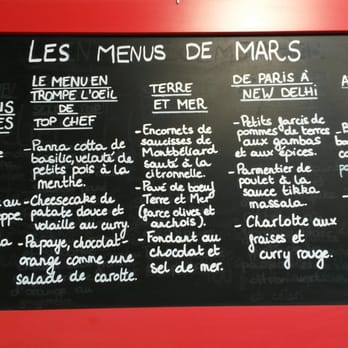 LES MENUS DE MARS
US
ES
au
ppe.
a
LE MENU EN
TROMPE L'OEIL
DE
TOP CHEF
- Panna cotta de
basilic, velouté de
petits pois à la
menthe.
- Cheesecake de
patate douce et
volaille au curry.
- Papaye, chocolat-
orange comme une
salade de carotte.
TERRE
ET MER
- Encornets de
saucisses de
Montbéliard
sauté à la
citronelle.
- Pavé de boeuf
Terre et Mer
(farce olives et
anchois).
- Fondant au
chocolat et
sel de mer.
DE PARIS À
NEW DELHI
- Petits farcis de
pommes de terres
aux gambas
et aux épices.
- Parmentier de
poulet à la
sauce tikka
massala.
- Charlotte aux
fraises et
curry rouge.
A